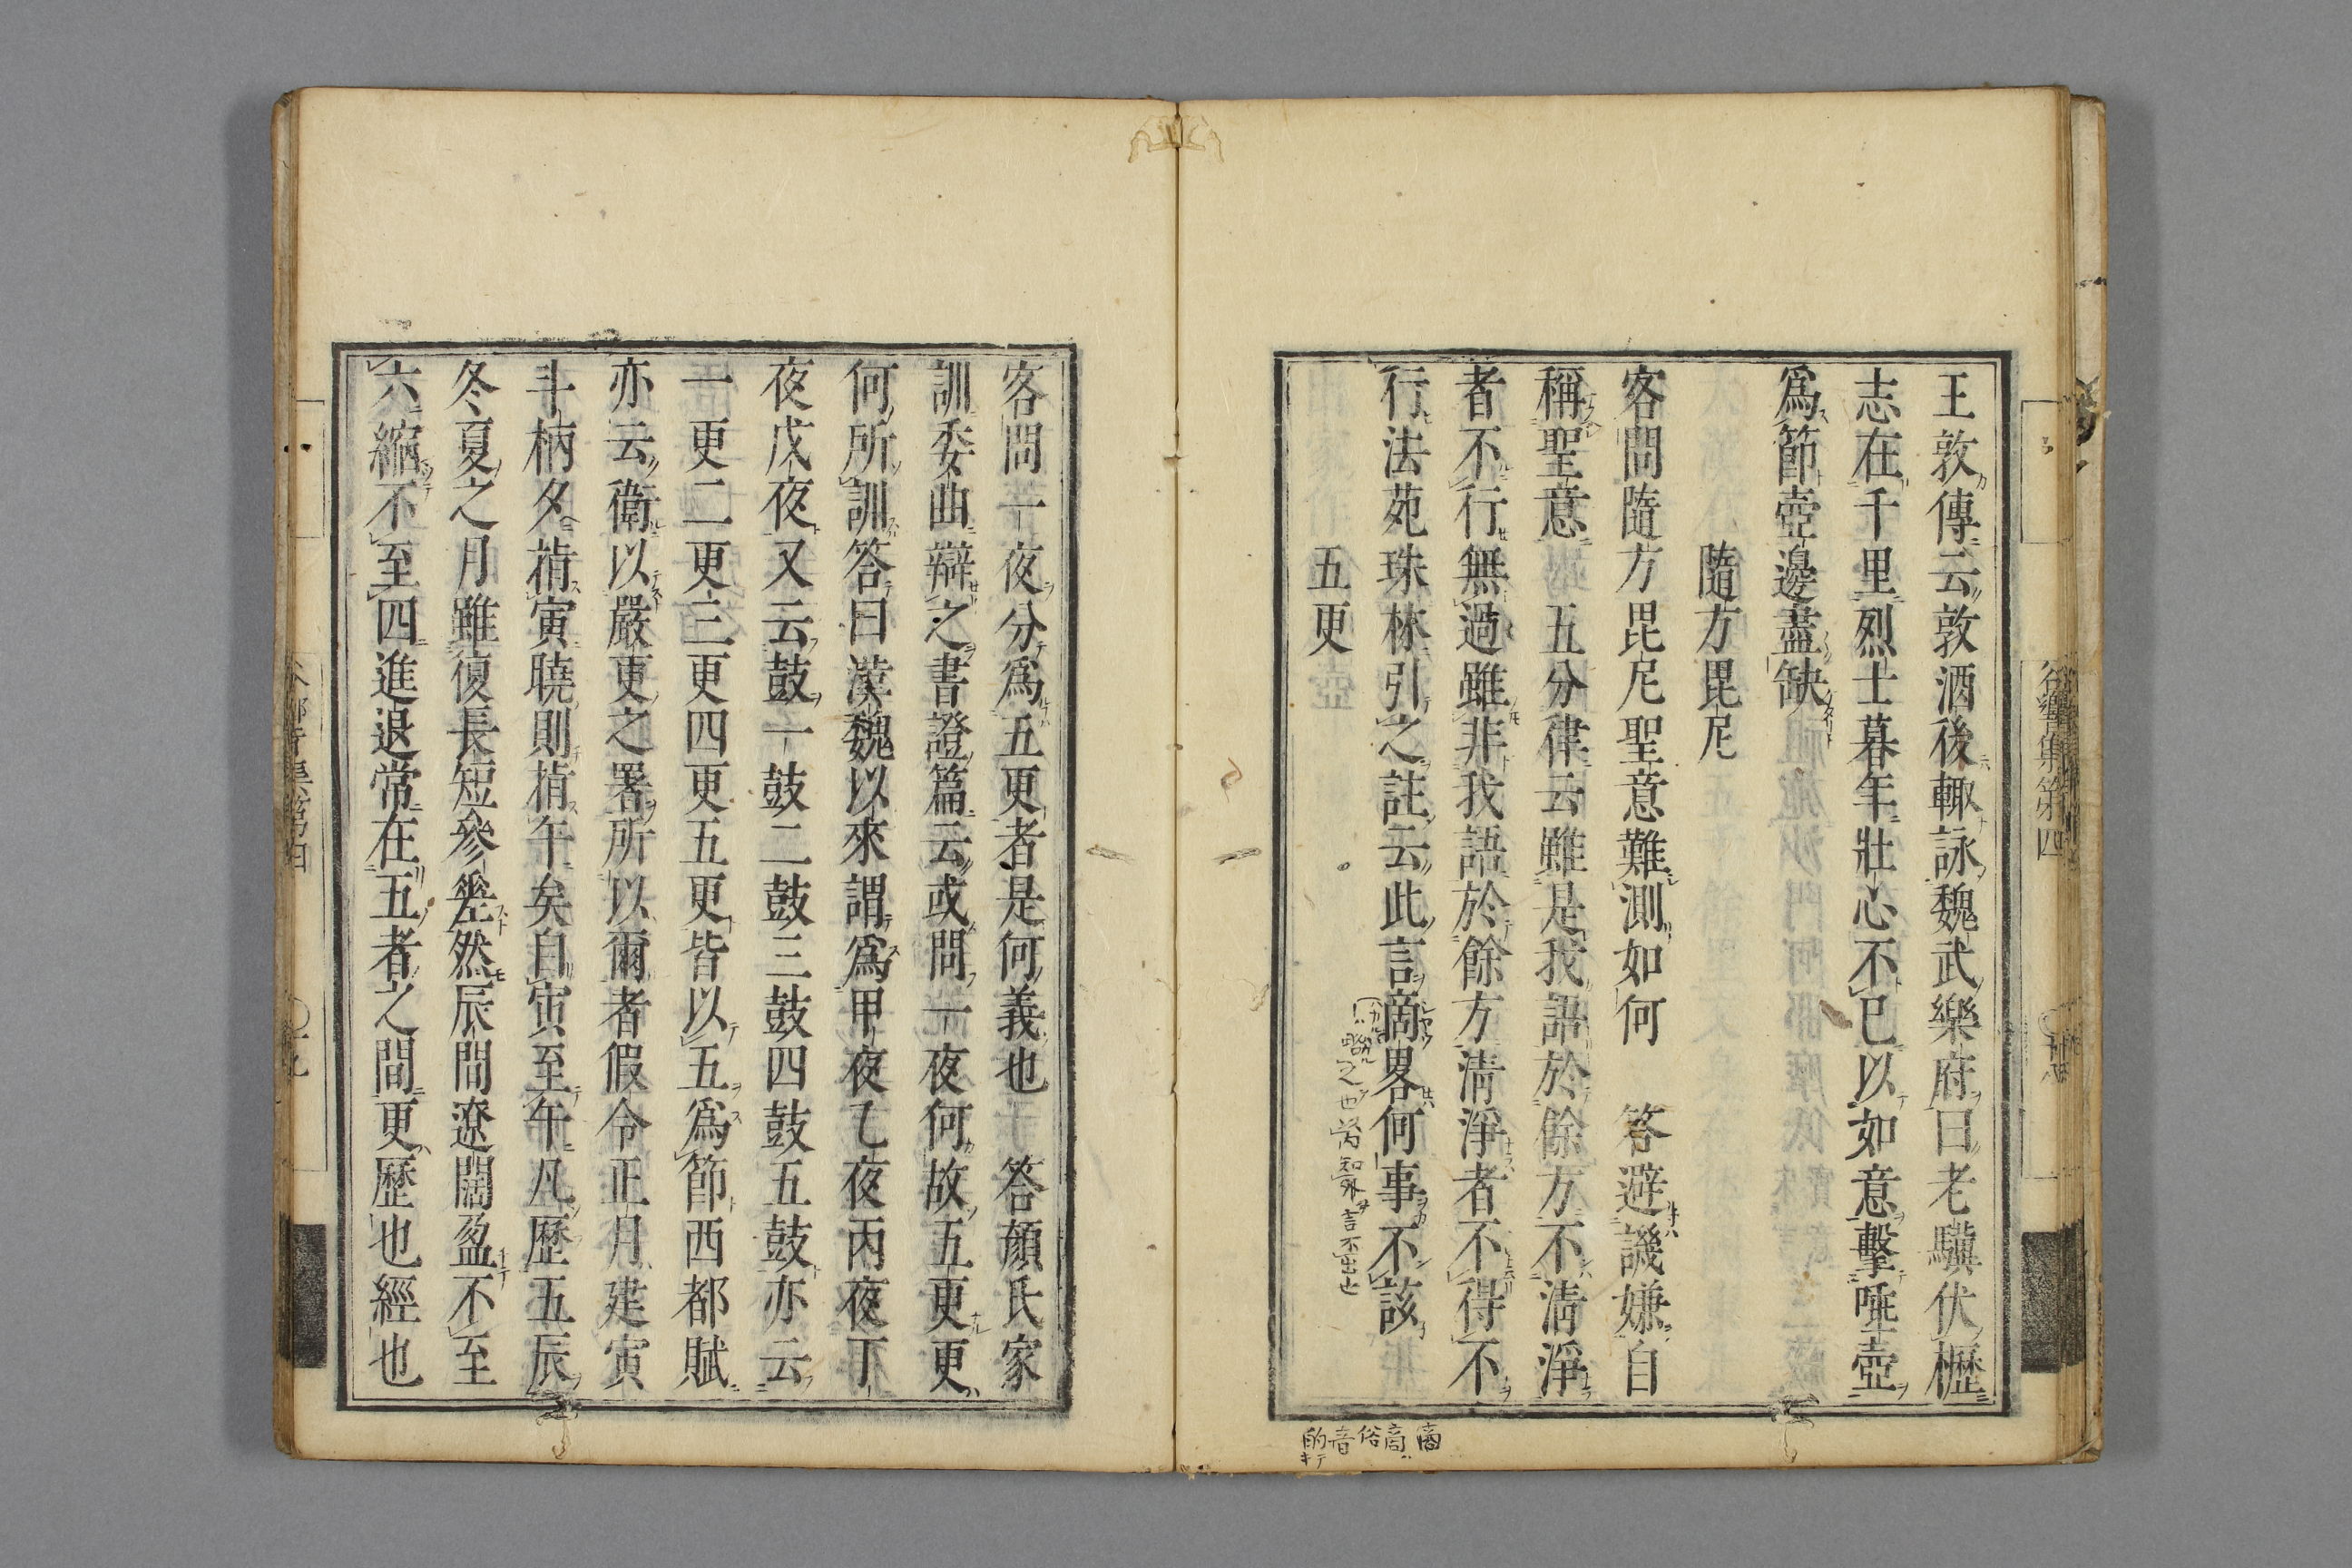 王敦傳云敦酒後輙詠魏武樂府曰老驥伏櫪
志在千里烈士暮年壯心不已以如意擊唾壺
爲節壺邊盡缺
隨方毘尼
客問隨方毘尼聖意難測如何　答避譏嫌自
稱聖意　五分律云雖是我語於餘方不淸淨
者不行無過雖非我語於餘方淸淨者不得不
行法苑珠林引之註云此言啇畧何事不該
五更
客問一夜分爲五更者是何義也　答顏氏家
訓委曲辯之書證篇云或問一夜何故五更更
何所訓答曰漢魏以來謂爲甲夜乙夜丙夜丁
夜戊夜又云鼓一鼓二鼓三鼓四鼓五鼓亦云
一更二更三更四更五更皆以五爲節西都賦
亦云衛以嚴更之署所以爾者假令正月建寅
斗柄夕指寅曉則指午矣自寅至午凡歷五辰
冬夏之月雖復長短參差然辰間遼闊盈不至
六縮不至四進退常在五者之間更歷也經也
谷響集第四